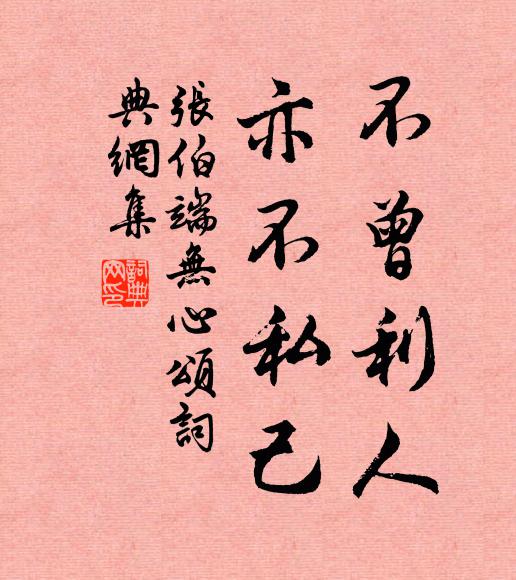 不曾利人
亦不私己
張伯端無心頌詞
典網集
詞典
网印